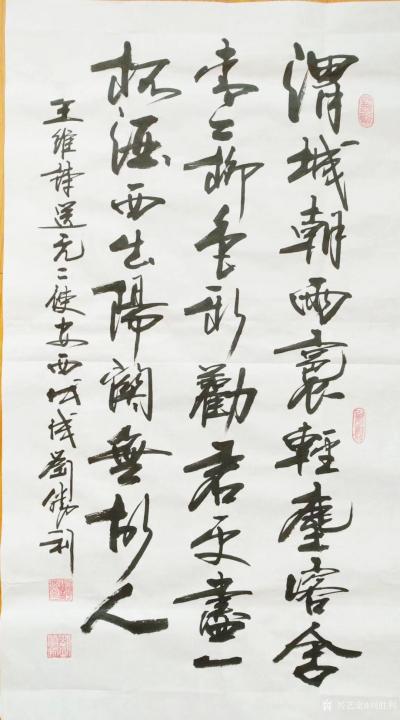 渭城朝雨裛輕塵客舍
青々柳色新勸君更盡一
杯酒西出陽關無故人
王維詩送元二使安西戊戌劉勝利